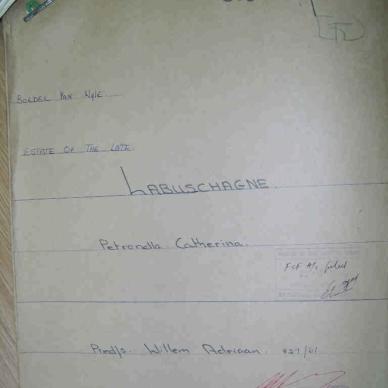 BOEDEL VAN WYLE
ESTATE OF THE LATE
LABUSCHAGNE.
Petronella Catherina.
Pred/s. Willem Adriaan. 827/61